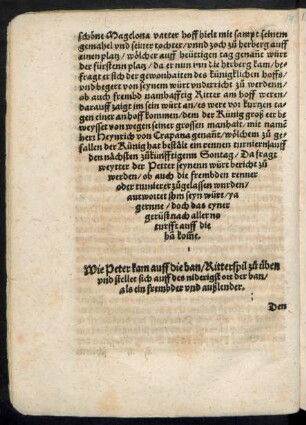 schöne Magelona vatter hoff hielt mit sampt seinem
gemahel vnd seiner tochter/ vnnd zoch zů herberg auff
einen platz/ wölcher auff heüttigen tag genañt würt
der fürstenn platz/ da er nun inn die herberg kam/ be-
fragt er sich der gewonhaiten des künigklichen hoffs/
vnd begert von seynem würt vnderricht zů werdenn/
ob auch frembd namhafftig Ritter am hoff weren/
darauff zaigt im sein würt an/ es were vor kurtzen ta-
gen einer an hoff kommen/ dem der Künig groß eer be
weysset von wegen seiner grossen manhait/ mit namē
herr Heynrich von Crapana genañt/ wölchem zů ge-
fallen der Künig hat bestält ein rennen turniern sauff
den nächsten zůkünfftigenn Sontag/ Da fragt
weytter der Petter seynenn würt bericht zů
werden/ ob auch die frembden renner
oder turnierer zůgelassen wurden/
antwortet jhm seyn würt/ ya
gerime/ doch das eyner
gerüst nach aller no
turfft auff die
bā kome.
Wie Peter kam auff die ban/ Ritterspil zů üben
vnd stellet sich auff des niderigst ort der ban/
als ein frembder vnd außlender.
Den